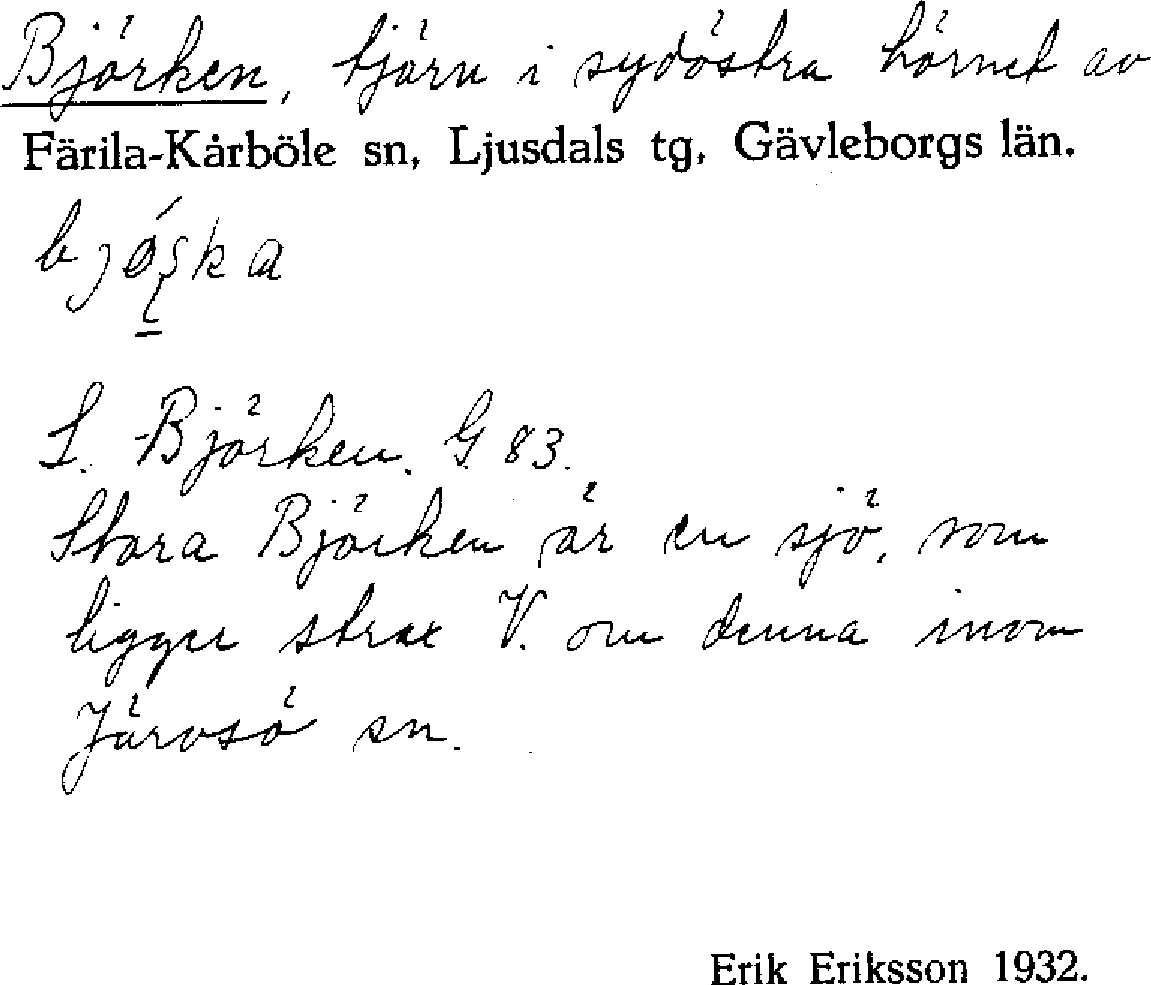 Björken, tjärn i sydöstra hörnet av
Färila-Kårböle sn, Ljusdals tg, Gävleborgs län.
L. Björken. G 83.
Stora Björken är en sjö, som
ligger strax V. om denna inom
Järvsö sn.
Erik Eriksson 1932.